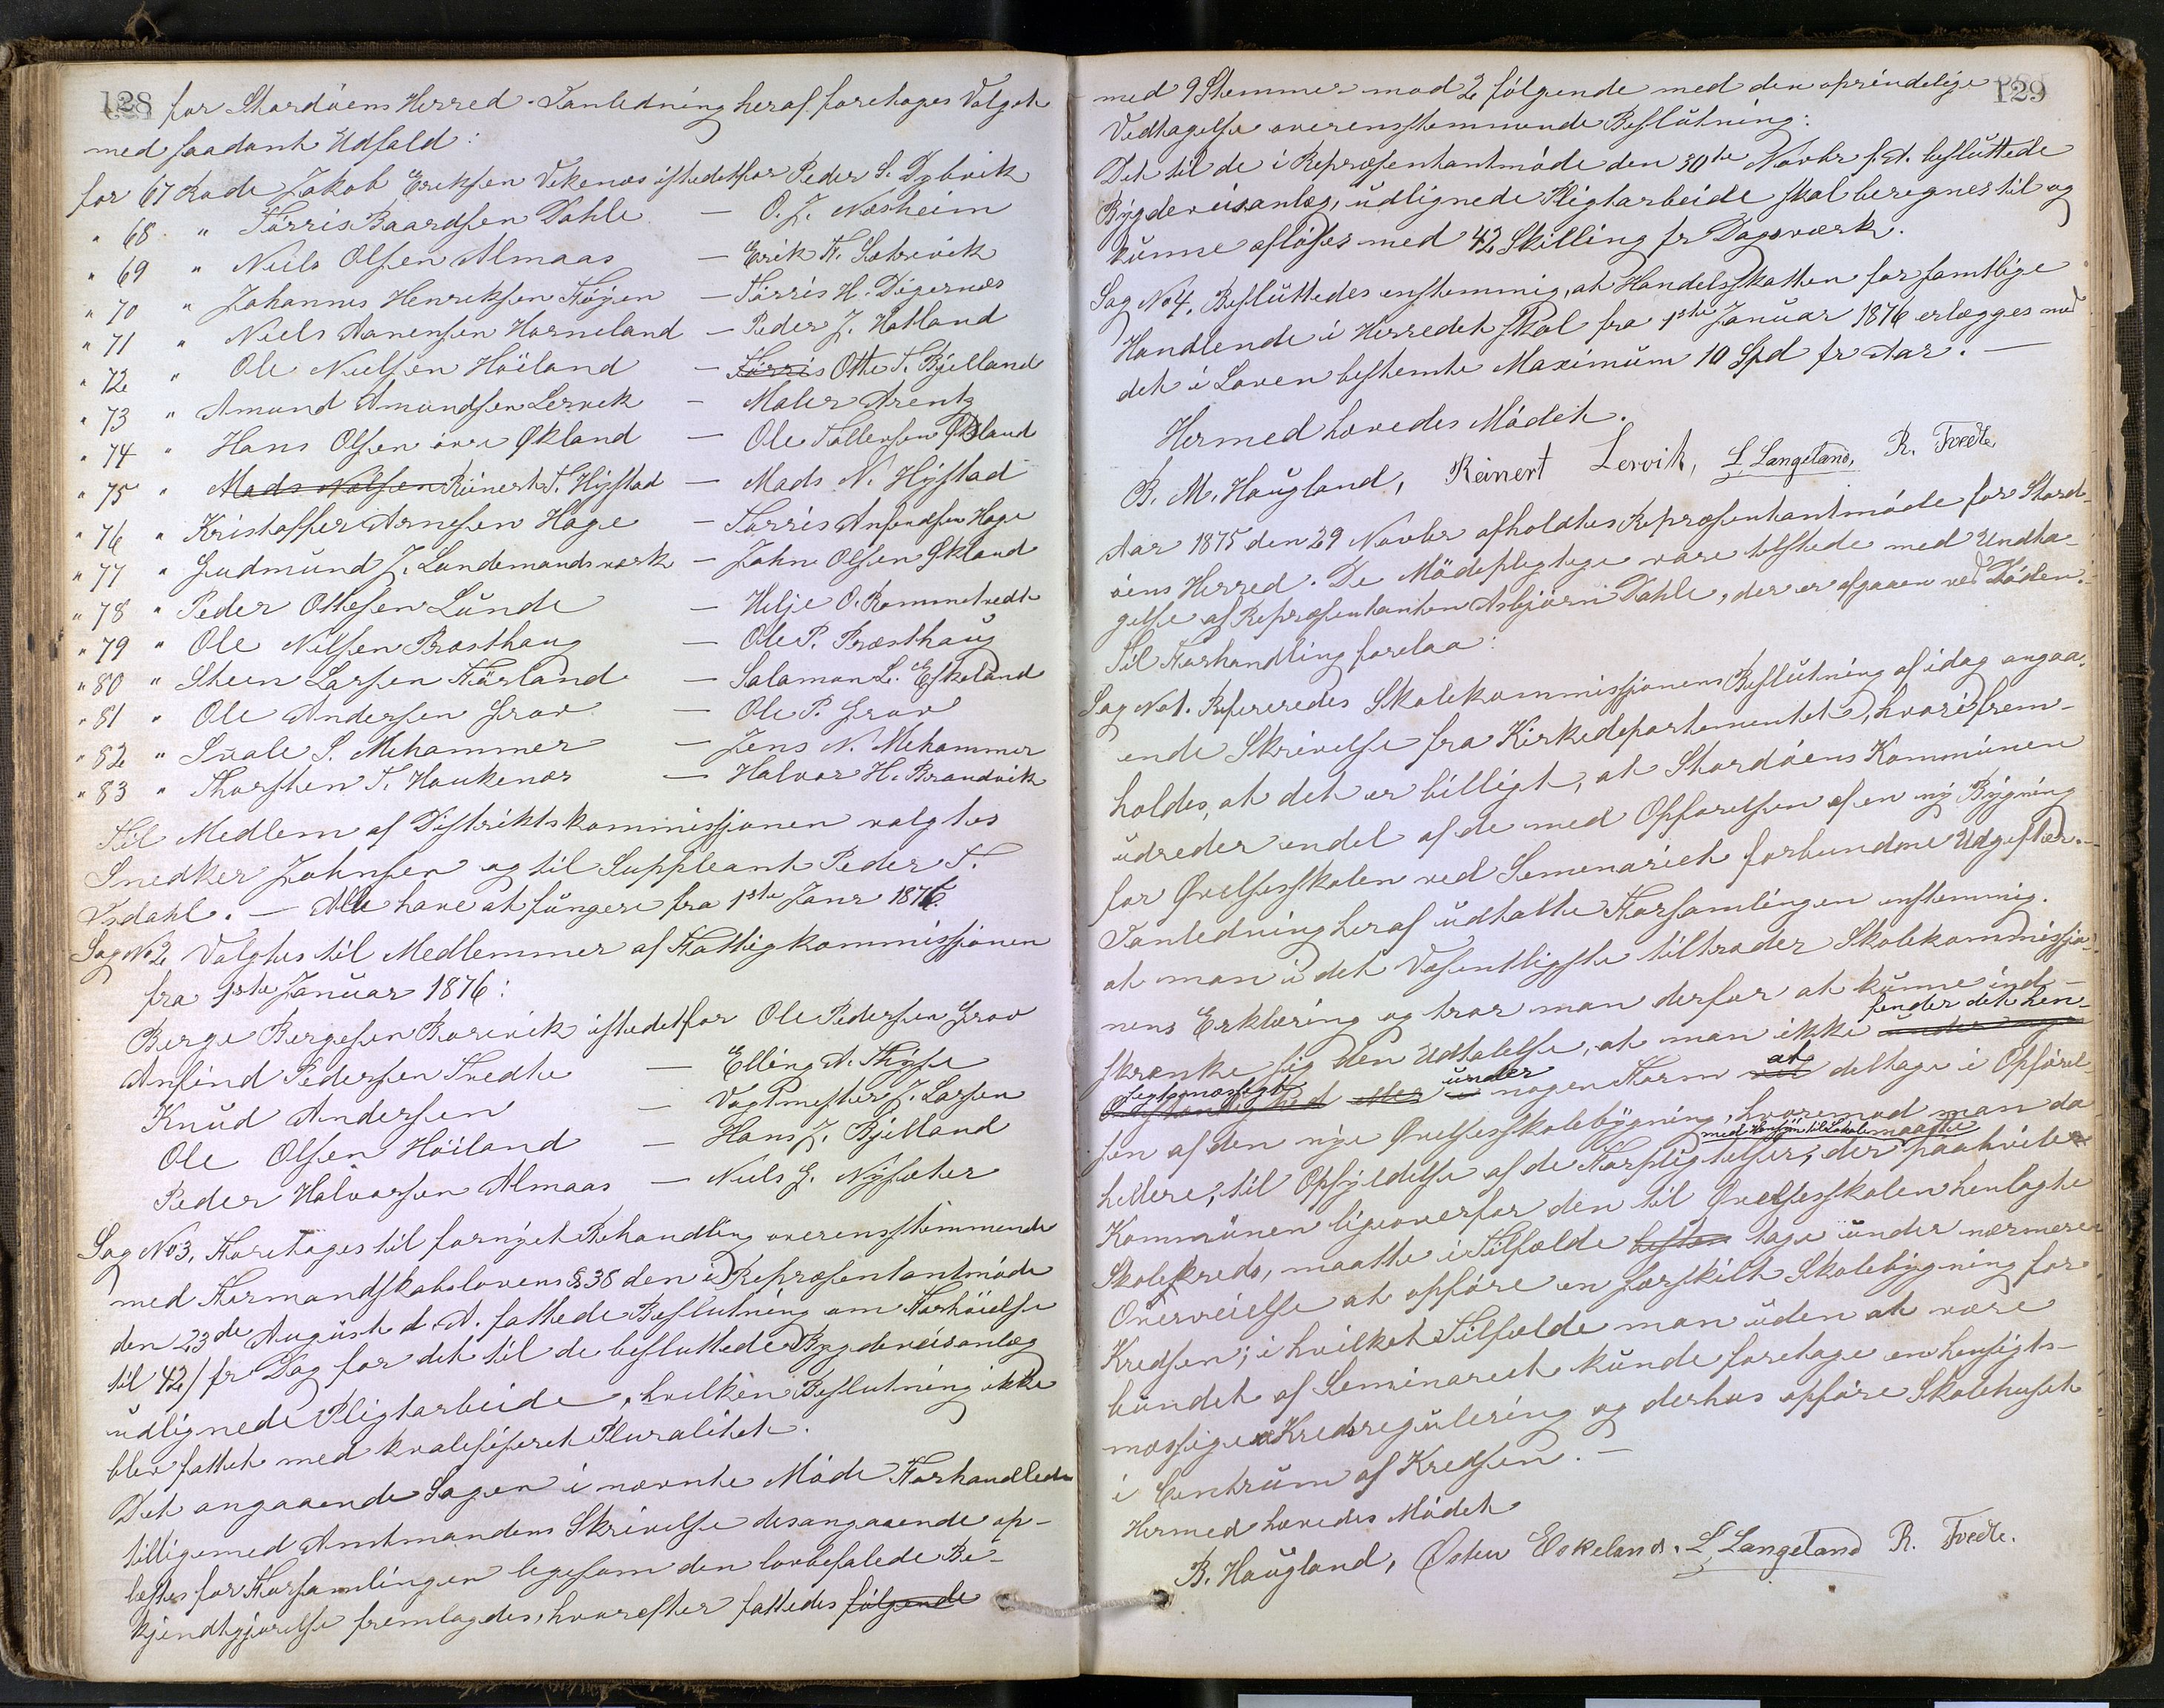 128 for Stordøens Herred. I anledning heraf foretoges Valget
med saadant Udfald:
for 67 Rode Jakob Eriksen Vekenæs istedetfor Peder S. Dybvik
" 68 " Tørris Baardsen Dahle — O. J. Næsheim
" 69 " Niels Olsen Almaas — Erik A. Sætrevik
" 70 " Johannes Henriksen Føyen — Tørris H. Digernæs
" 71 " Niels Aanensen Horneland — Peder J. Hatland
" 72 " Ole Nielsen Høiland — Tørris Otte T. Bjelland
" 73 " Amund Amundsen Lervik — Maler Arentz
" 74 " Hans Olsen øvre Økland — Ole Tollevsen Økland
" 75 " Mads Nilsen Reinert T. Hystad — Mads N. Hystad
" 76 " Kristoffer Arnesen Hage — Tørris Anfindsen Hage
" 77 " Gudmund J. Landemandsværk — John Olsen Økland
" 78 " Peder Ottesen Lunde — Helje O. Rommetvedt
" 79 " Ole Nilsen Præsthaug — Ole P. Præsthaug
" 80 " Steen Larsen Færland — Salamon L. Eskeland
" 81 " Ole Andersen Grov — Ole P. Grov
" 82 " Sivale S. Mehammer — Jens N. Mehammer
" 83 " Thorsten T. Haukenæs — Halvor H. Brandvik
Til Medlem af Distriktskommissjonen valgtes
Snedker Johnsen og til Suppleant Peder T.
Vadahl. — Alle have at fungere fra 1ste Janr 1876.
Sag No 2. Valgtes til Medlemmer af Fattigkommissjonen
fra 1ste Januar 1876:
Berge Bergesen Borevik istedetfor Ole Pedersen Grov
Anfind Pedersen Tvedte — Elling A. Thyse
Knud Andersen — Vagtmester J. Larsen
Ole Olsen Høiland — Hans J. Bjelland
Peder Halvorsen Almaas — Niels G. Nysæter
Sag No 3. Foretoges til fornyet Behandling overensstemmende
med Formandskabslovens § 38 den i Repræsentantmøde
den 23de August d. A. fattede Beslutning om Forhøielse
til 42 / pr Dag for det til de besluttede Bygdeveisanlæg
udlignede Pligtarbeide, hvilken Beslutning ikke
blev fattet med kvalificeret Pluralitet.
Det angaaende Sagen i nævnte Møde Forhandlede
tilligemed Amtmandens Skrivelse desangaaende op-
læstes for Forsamlingen ligesom den lovbefalede Be-
kjendtgjørelse fremlagdes, hvorefter fattedes følgende
129
med 9 Stemmer mod 2 følgende med den oprindelige
Vedtagelse overensstemmende Beslutning:
Det til de i Repræsentantmøde den 30te Novbr f. A. besluttede
Bygdeveisanlæg, udlignede Pligtarbeide skal beregnes til og
kunne afløses med 42 Skilling pr Dagsværk.
Sag No 4. Besluttedes enstemmig, at Handelsskatten for samtlige
Handlende i Herredet skal fra 1ste Januar 1876 erlægges med
det i Loven bestemte Maximum 10 Spd pr Aar. —
Hermed hævedes Mødet.
B. M. Haugland, Reinert Lervik, L Langeland, R. Tvedte
Aar 1875 den 29 Novbr afholdtes Repræsentantmøde for Stord-
øens Herred. De Mødepligtige vare tilstede med Undta-
gelse af Repræsentanten Asbjørn Dahle, der er afgaaen ved Døden.
Til Forhandling forelaa:
Sag No 1. Refereredes Skolekommissjonens Beslutning af idag angaa-
ende Skrivelse fra Kirkedepartementet, hvori frem-
holdes, at det er billigt, at Stordøens Kommunen
udreder endel af de med Opførelsen af en ny Bygning
for Øvelsesskolen ved Semenariet forbundne Udgifter. —
I anledning heraf udtalte Forsamlingen enstemmig.
at man i det Væsentligste tiltræder Skolekommissjo-
nens Erklæring og tror man derfor at kunne ind-
skrænke sig den Udtalelse, at man ikke under nogen finder det hen-
Omstændighed sigtsmæssigt eller i under nogen Form vil at deltage i Opførel-
sen af den nye Øvelsesskolebygning, hvoremod man da
hellere, til Opfyldelse af de Forpligtelser, med Hensyn til Lokale maatte der paahvile
Kommunen ligeoverfor den til Øvelsesskolen henlagte
Skolekreds, maatte i Tilfælde besten tage under nærmere
Overveielse at opføre en særskilt Skolebygning for
Kredsen; i hvilket Tilfælde man uden at være
bundet af Seminariet kunde foretage en hensigts-
mæssigere Kredsregulering og derhos opføre Skolehuset
i Centrum af Kredsen. —
Hermed hævedes Mødet
B. Haugland, Østen Eskeland. L Langeland R. Tvedte.